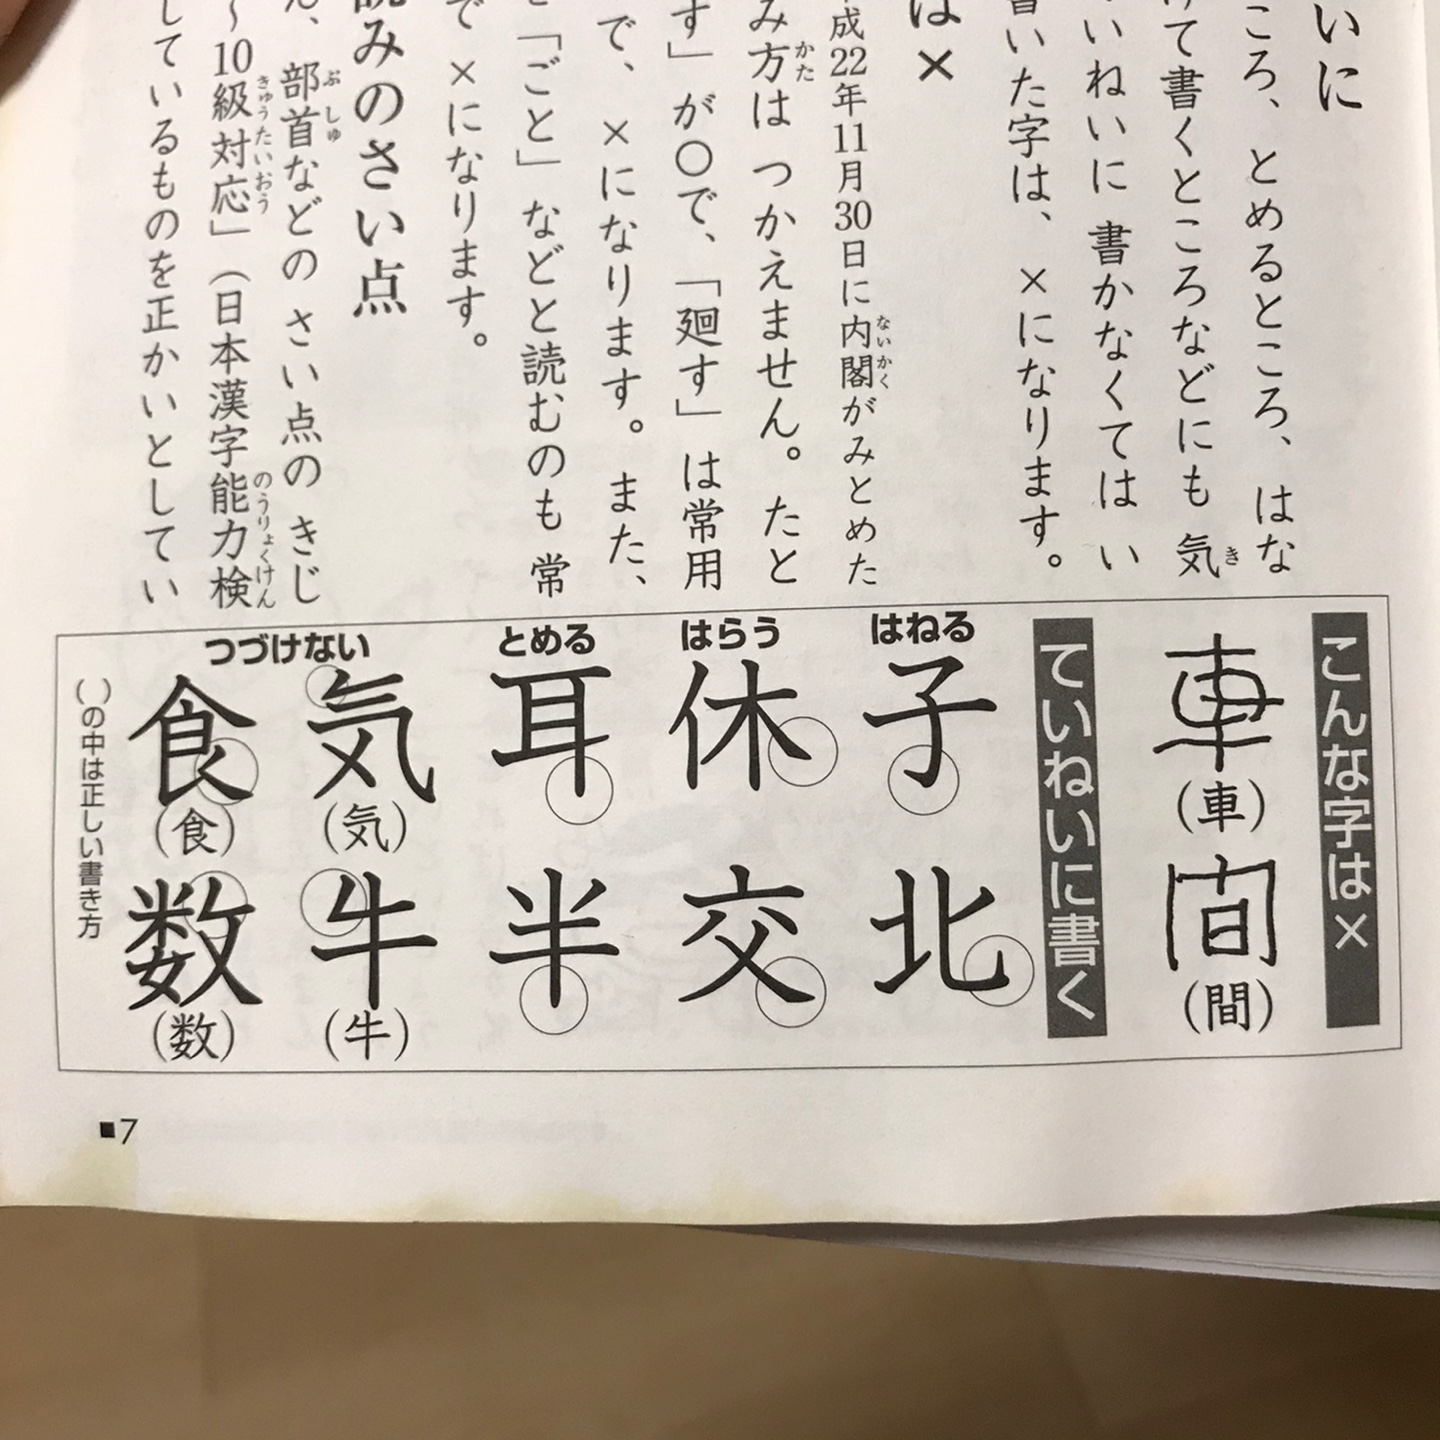 いに
ころ、とめるところ、はな
けて書くところなどにも 気
いねいに 書かなくては い
書いた字は、×になります。
は×
成22年11月30日に内閣がみとめた
み方は つかえません。たと
す」が〇で、「廻す」は常用
で、×になります。また、
「ごと」などと読むのも 常
で×になります。
読みのさい点
ん、部首などの さい点の きじ
～10級対応」(日本漢字能力検
しているものを正かいとしてい
こんな字は×
車
(車)
間
(間)
ていねいに書く
はねる
子
北
はらう
休
交
とめる
耳
半
つづけない
気
(気)
牛
(牛)
食
(食)
数
(数)
( )の中は正しい書き方
■7